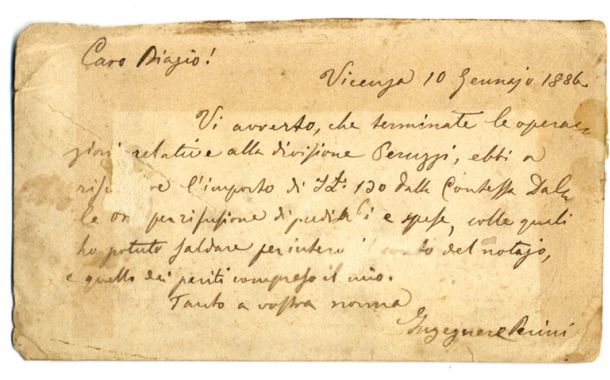 Caro Biagio!
Vicenza 10 Gennajo 1886
Vi avverto, che terminate le opera-
zioni relative alla divisione Peruzzi, ebbi a
l'importo di 130 dalla Contessa
per rifusione di e spese, colle quali
ho potuto saldare per intero del notajo,
e quello dei periti compreso il mio.
Tanto a vostra norma
Ingegnere Perini